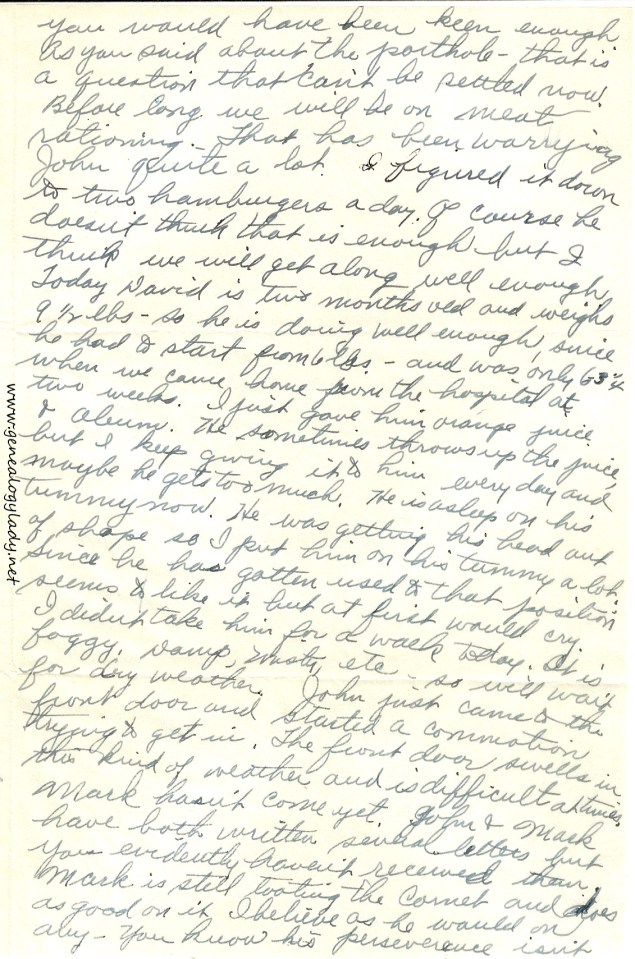 you would have been keen enough
As you said about the porthole - that is
a question that can't be settled now.
Before long we will be on meat
rationing - That has been worrying
John quite a lot. I figured it down
to two hamburgers a day. Of course he
doesn't think that is enough but I
think we will get along well enough.
Today David is two months old and weighs
9 1/2 lbs - so he is doing well enough, since
he had to start from 6 lbs - and was only 6 3
when we came home from the hospital at
two weeks. I just gave him orange juice
& oleum. He sometimes throws up the juice,
but I keep giving it to him every day and
maybe he gets too much. He is asleep on his
tummy now. He was getting his head out
of shape so I put him on his tummy a lot.
Since he has gotten used to that position
seems to like it but at first would cry.
I didn't take him for a walk today. It is
foggy, damp, misty, etc - so will wait
for dry weather. John just came to the
front door and started a commotion
trying to get in. The front door swells in
this kind of weather and is difficult at times.
Mark hasn't come yet. John & Mark
have both written several letters but
you evidently haven't received them.
Mark is still tooting the cornet and does
as good on it I believe as he would on
any - You know his perseverence isn't
www.genealogylady.net